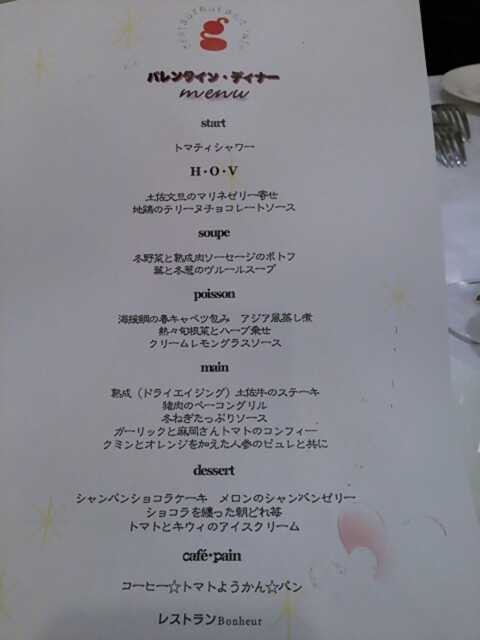 バレンタイン・ディナー
menu
start
トマティシャワー
H・O・V
土佐文旦のマリネゼリー寄せ
地鶏のテリーヌチョコレートソース
soupe
冬野菜と熟成肉ソーセージのポトフ
葉と冬葱のヴルールスープ
poisson
海援鯛の春キャベツ包み アジア風蒸し煮
熱々旬根菜とハーブ乗せ
クリームレモングラスソース
main
熟成（ドライエイジング）土佐牛のステーキ
猪肉のベーコングリル
冬ねぎたっぷりソース
ガーリックと麻岡さんトマトのコンフィー
クミンとオレンジを加えた人参のピュレと共に
dessert
シャンパンショコラケーキ メロンのシャンパンゼリー
ショコラを纏った朝どれ苺
トマトとキウィのアイスクリーム
café・pain
コーヒー☆トマトようかん☆パン
レストランBonheur